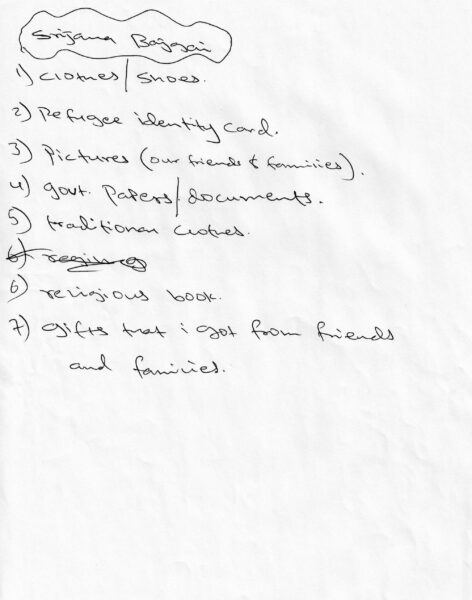 Srijana Bajgai
1) clothes / shoes.
2) Refugee identity card.
3) Pictures (our friends & families).
4) govt. Papers / documents.
5) traditional clothes.
6) religious book.
7) gifts that i got from friends
and families.